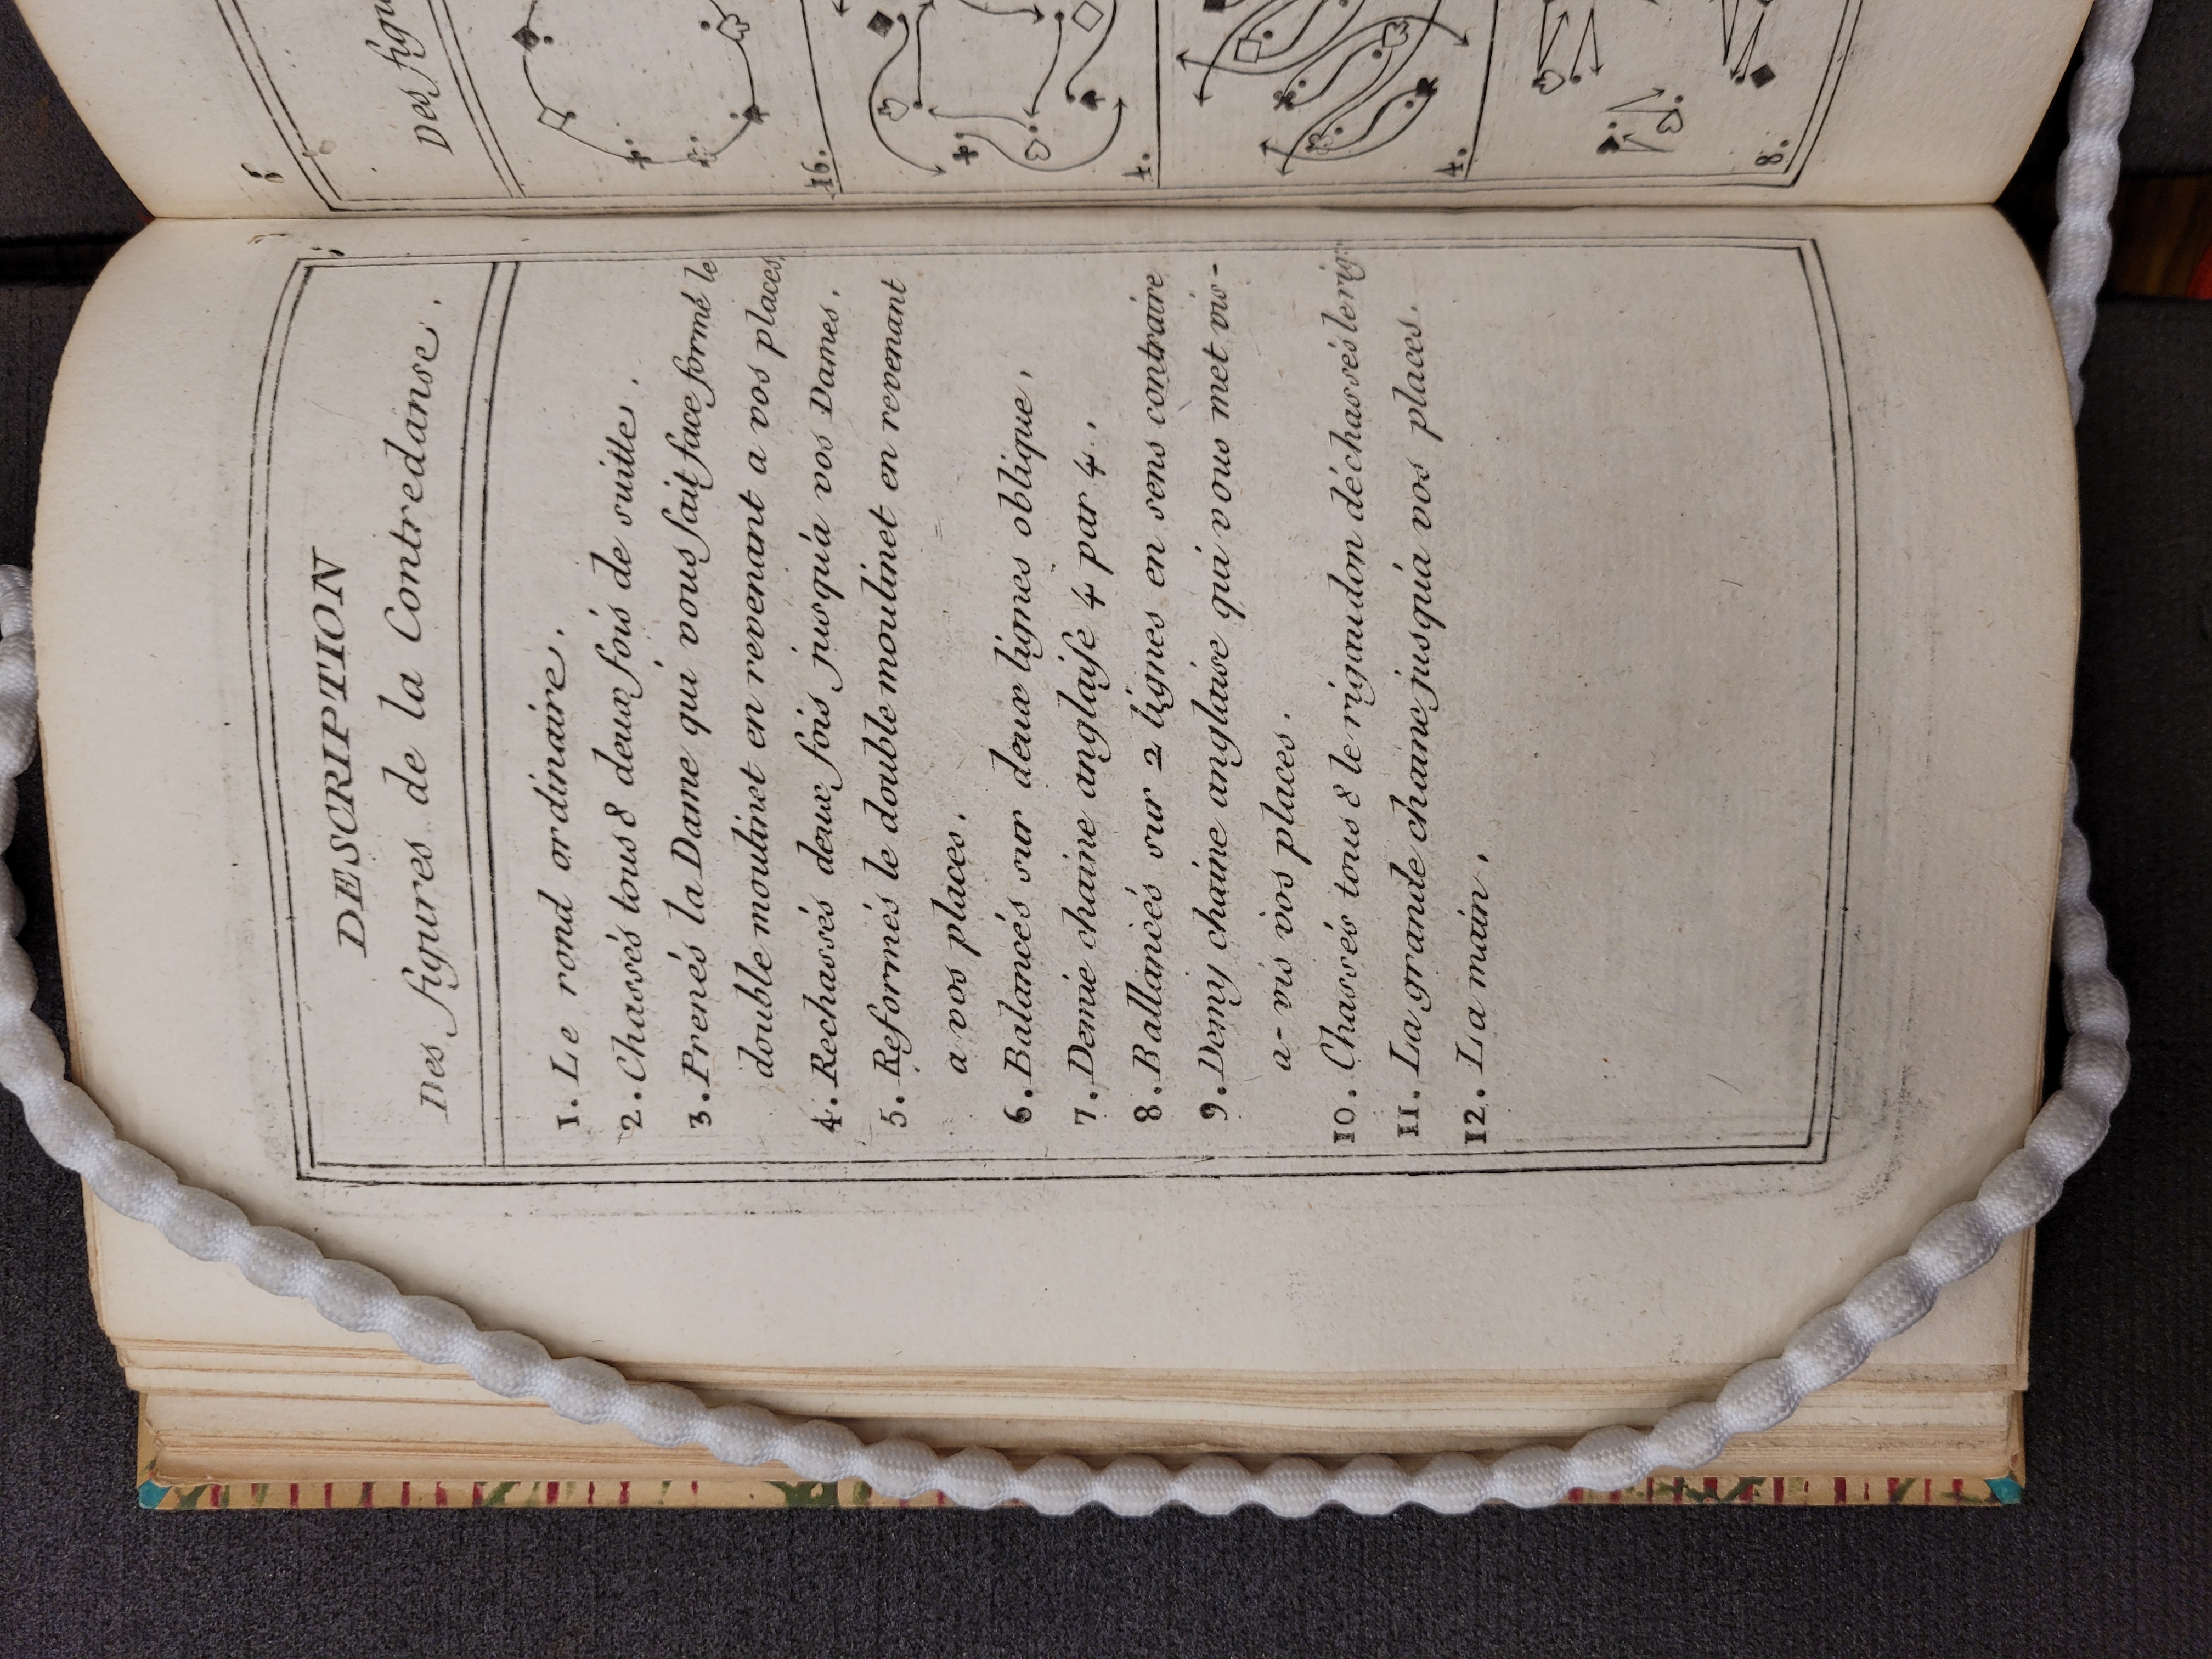 DESCRIPTION
Des figures de la Contredanse.
1. Le rond ordinaire.
2. Chassés tous 8 deux fois de suitte.
3. Prenés la Dame qui vous fait face formé le
double moulinet en revenant a vos places
4. Rechassés deux fois jusqu'a vos Dames.
5. Reformés le double moulinet en revenant
a vos places.
6. Balancés sur deux lignes oblique.
7. Demie chaine anglaise 4 par 4.
8. Ballancés sur 2 lignes en sens contraire
9. Demy chaine anglaise qui vous met vis-
a-vis vos places.
10. Chassés tous 8 le rigaudon déchassés le rig
11. La grande chaine jusqu'a vos places.
12. La main.
Des figu
16.
4.
4.
8.